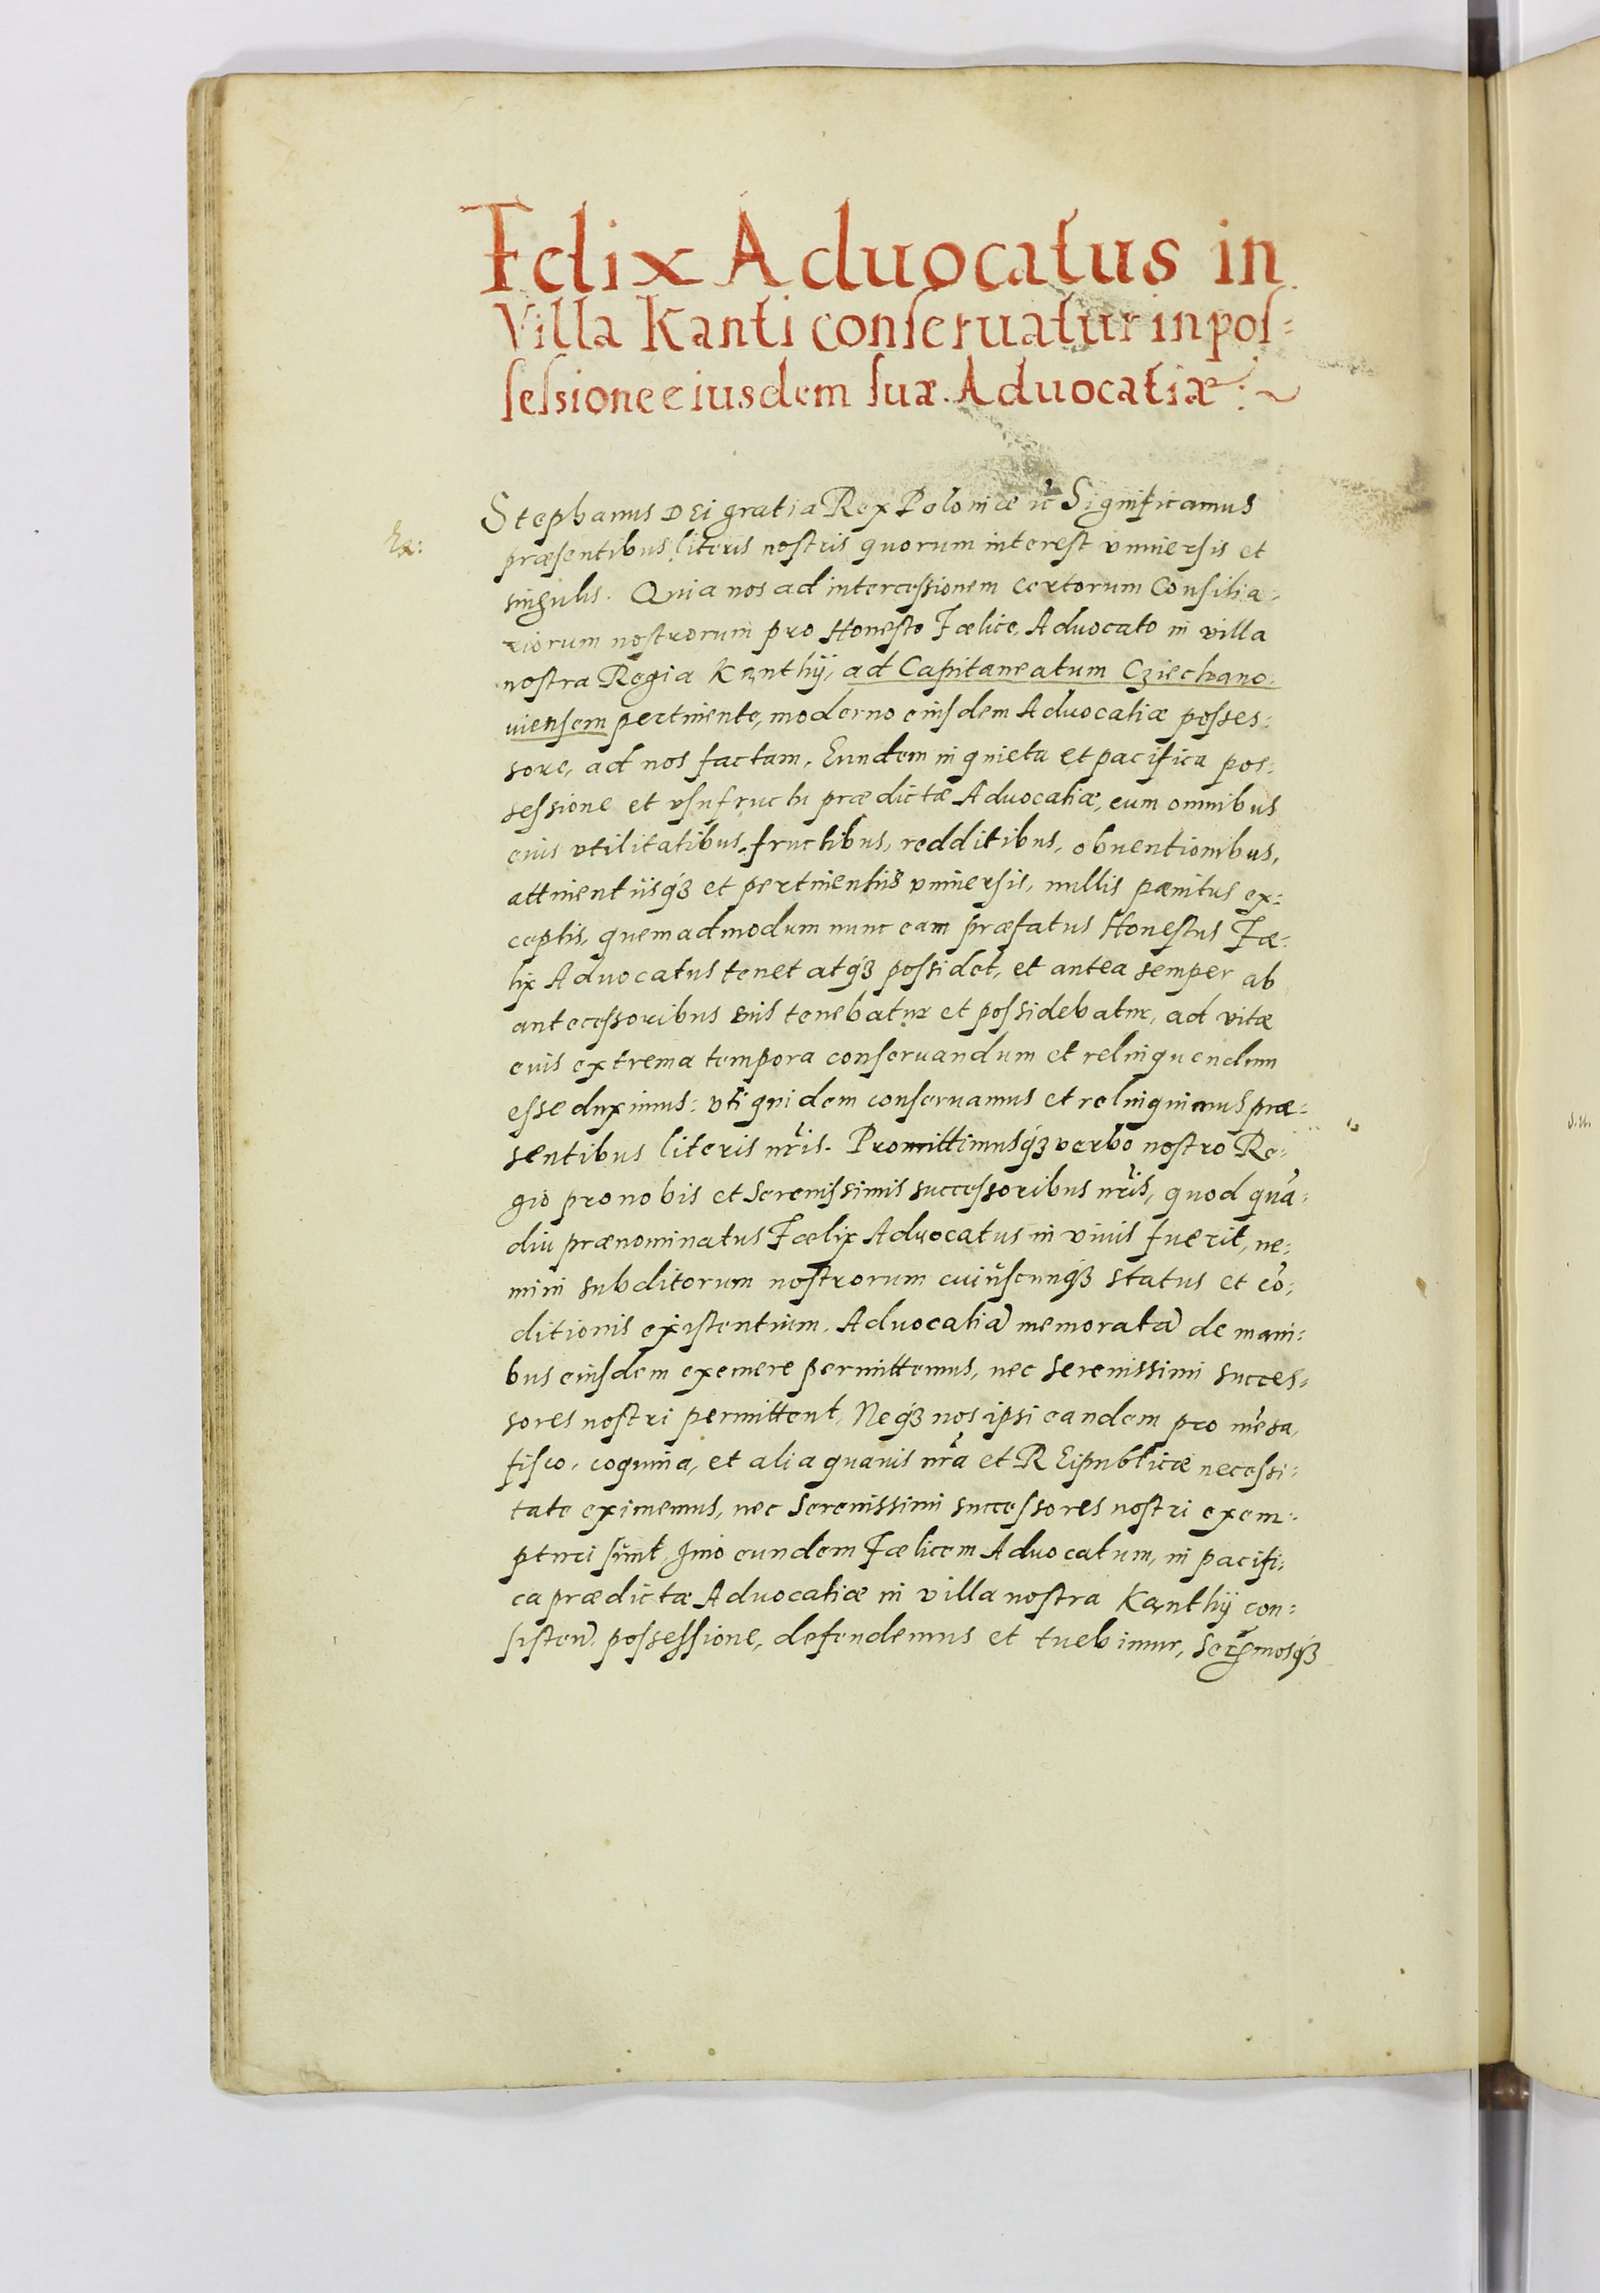 Felix Aduocatus in
Villa Kanti conseruatur in pos=
sessione eiusdem suæ Aduocatiæ:~
Stephanus DEi gratia Rex Poloniæ ec̃ Significamus
præsentibus literis nostris quorum interest vniuersis et
singulis. Quia nos ad intercessionem certorum Consilia=
riorum nostrorum pro Honesto Fœlice, Aduocato in villa
nostra Regia Kąnthij, ad Capitaneatum Cziechano=
uiensem pertinente, moderno eiusdem Aduocatiæ posses=
sore, ad nos factam, Eundem in quieta et pacifica pos=
sessione et vsufructu prædictæ Aduocatiæ, cum omnibus
euis vtilitatibus, fructibus, redditibus, obuentionibus,
attinentiisq́ꝫ et pertinentiis vniuersis, nullis pænitus ex=
ceptis, quemadmodum nunc eam præfatus Honestus Fœ=
lix Aduocatus tenet atq́ꝫ possidet, et antea semper ab
antecessoribus suis tenebatur et possidebatur, ad vitæ
euis extrema tempora conseruandum et relinquendum
esse duximus: vti quidem conseruamus et relinquimus præ=
sentibus literis nr̃is. Promittimusq́ꝫ verbo nostro Re=
gio pro nobis et Serenissimis successoribus nr̃is, quod quã=
diu prænominatus Fœlix Aduocatus in viuis fuerit, ne=
mini subditorum nostrorum cuiuscunq́ꝫ status et cõ=
ditionis existentium, Aduocatiã memoratã de mani=
bus eiusdem exemere permittemus, nec Serenissimi succes=
sores nostri permittent, Neq́ꝫ nos ipsi eandem pro mẽsa,
fisco, coquina, et alia quauis nr̃a et REipublicæ necessi=
tate eximemus, nec Serenissimi successores nostri exem=
pturi sunt, Imo eundem Fœlicem Aduocatum, in pacifi=
ca prædictæ Aduocatiæ in villa nostra Kąnthij con=
sisten̄. possessione, defendemus et tuebimur, Serẽmosq́ꝫ